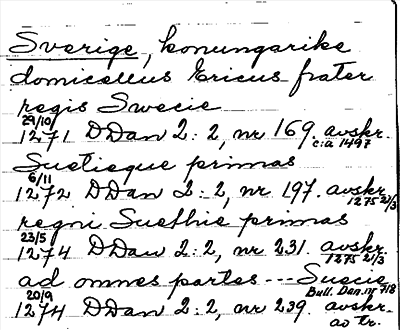 Sverige, konungarike
domicellus Ericus frater
regis Swecie
29/10
1271 DDan 2:2, nr 169. avskr.
c:a 1497
Suetieque primas
6/11
1272 DDan 2:2, nr 197. avskr.
1275 21/3
regni Suethie primas
23/5
1274 DDan 2:2, nr 231. avskr.
1275 21/3
ad omnes partes --- Suecie
Bull. Dan. nr 718
20/9
1274 DDan 2:2, nr 239. avskr.
av tr.